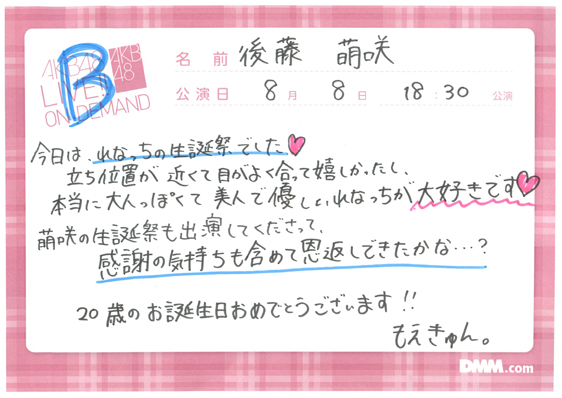 AKB48
AKB48
LIVE!!
ON DEMAND
B
名前 後藤 萌咲
公演日 8月 8日 18:30 公演
今日は、れなっちの生誕祭でした
立ち位置が近くて目がよく合って嬉しかったし、
本当に大人っぽくて美人で優しいれなっちが大好きです
萌咲の生誕祭も出演してくださって、
感謝の気持ちも含めて恩返しできたかな…?
20歳のお誕生日おめでとうございます!!
もえきゅん。
DMM.com